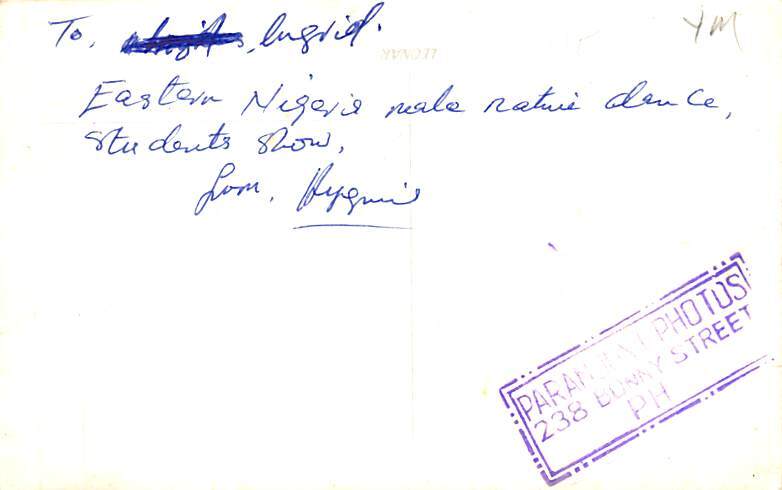 To, Ingrid.
YM
LEONAR
Eastern Nigeria male native dance,
students show,
from,
PARAMOUNT PHOTOS
238 BONNY STREET
PH